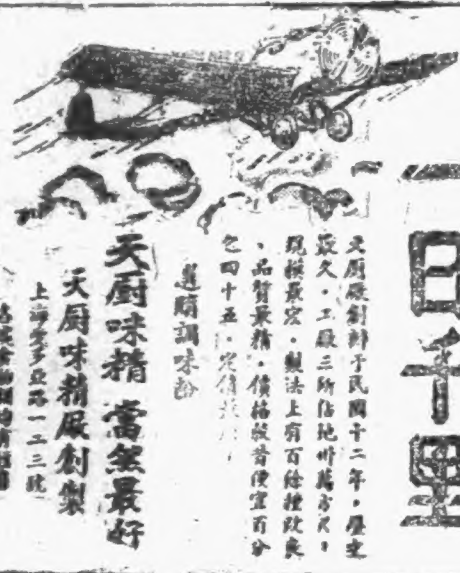 一日千里
天廚廠創辦于民國十二年，歷史
最久，工廠三所佔地卅萬方尺，
規模最宏，製法上有百餘種改良
、品質最精，價格較昔便宜百分
之四十五，定價
選購調味粉
天廚味精 當然最好
天廚味精廠創製
上海愛多亞路一二三號